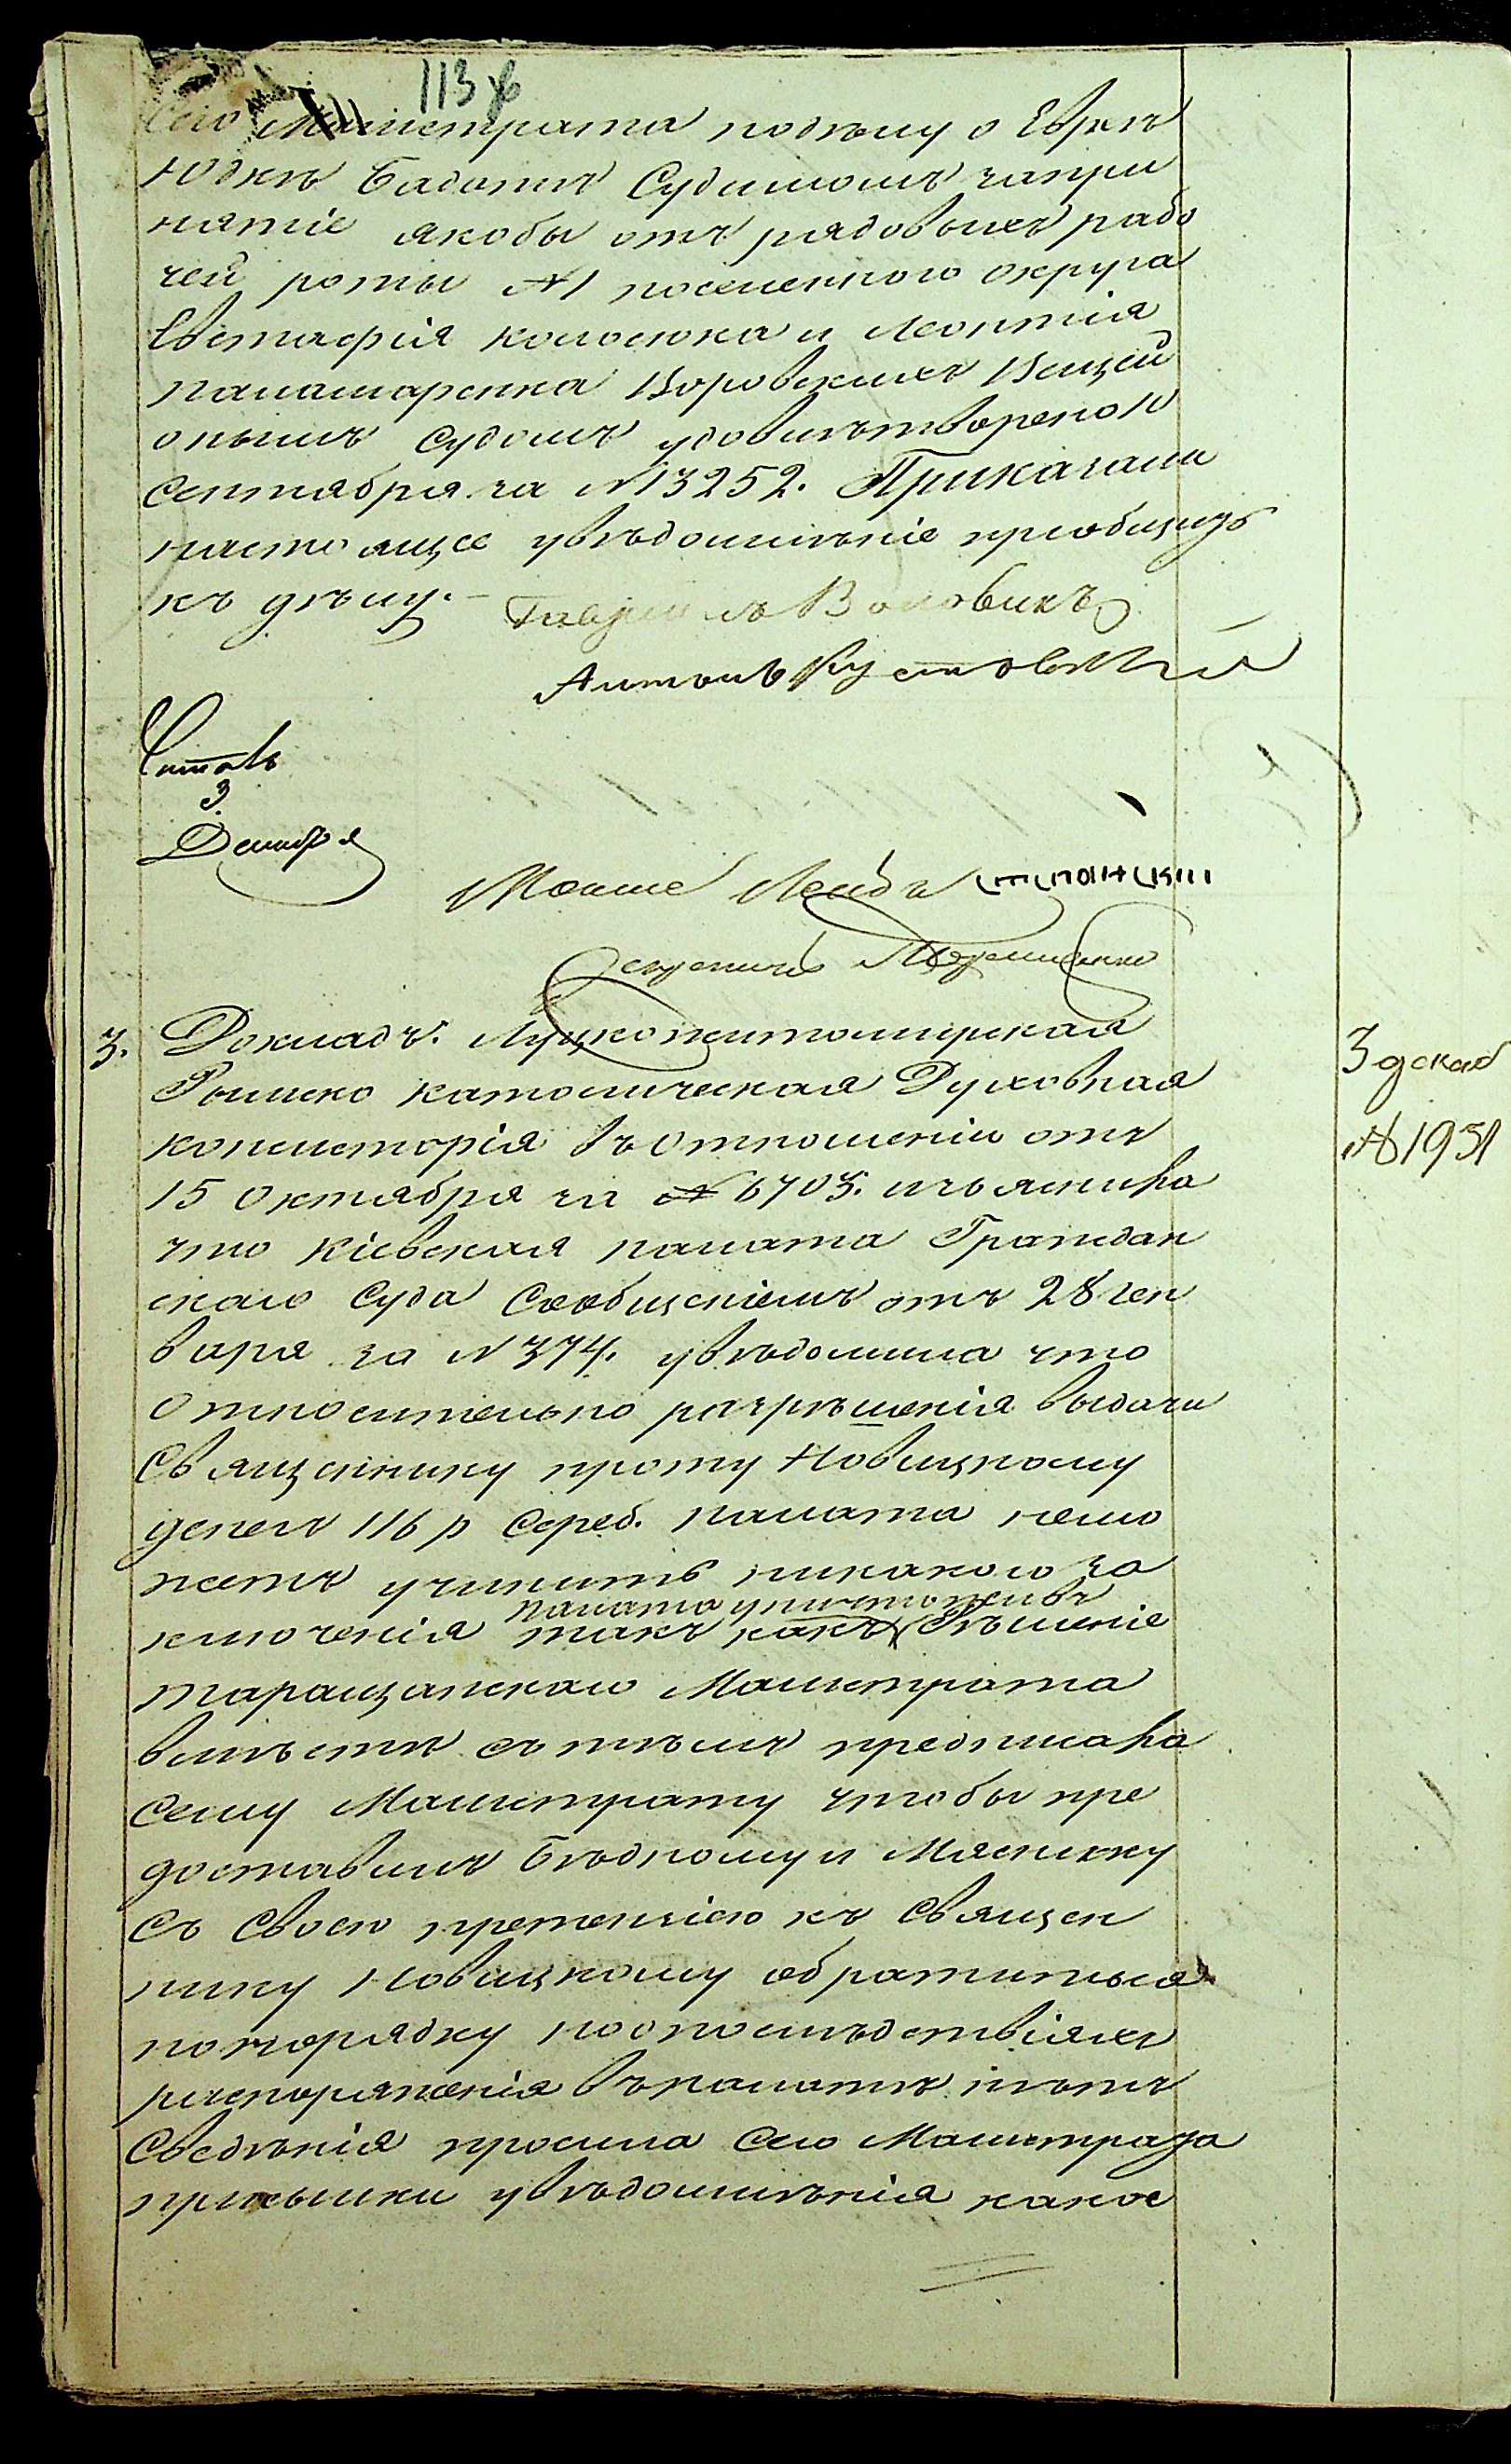 113
Сего Магистрата поделу о Евреѣ
Юдкѣ Судимомъ запри
нятіе якобы отъ рядовыхъ рабо
чей роты №1 поселенного округа
Евстафія и Леонтія
Паламаренка Воровскихъ Вещей
онымъ Судомъ удовлѣтворено 10
Сентября за №13252. Приказали
настоящее увѣдомлѣніе пріобщить
къ дѣлу.
Гавриилъ Воловикъ
Антонъ Кустовскій
Читалъ
3
Декабря
Мошие Лейбъ
Секретарь
3. Докладъ. Луцкожитомирская
Римско католическая Духовная
консисторія въотношеніи отъ
15 Октября за №6703. изъяснила
что Кіевская палата Граждан
скаго Суда Сообщеніемъ отъ 28 ген
варя за №374. увѣдомила что
относительно разрѣшенія выдачи
Священнику Новицкому
денегъ 116 р Сереб. палата немо
жетъ учинить никакого за
палата уничтоживъ
ключенія такъ какъ Рѣшеніе
Таращанскаго Магистрата
вмѣстѣ сътѣмъ предписала
Сему Магистрату чтобы пре
доставилъ Бѣдному и Мяснику
Съ Своею претензіею къ Священ
нику Новицкому обратиться
попорядку ноопослѣдствіяхъ
распоряженія въпалатѣ нѣтъ
Сведѣнія просила Сего Магистрата
присылки увѣдомлѣнія какое
3 декаб
№ 1931